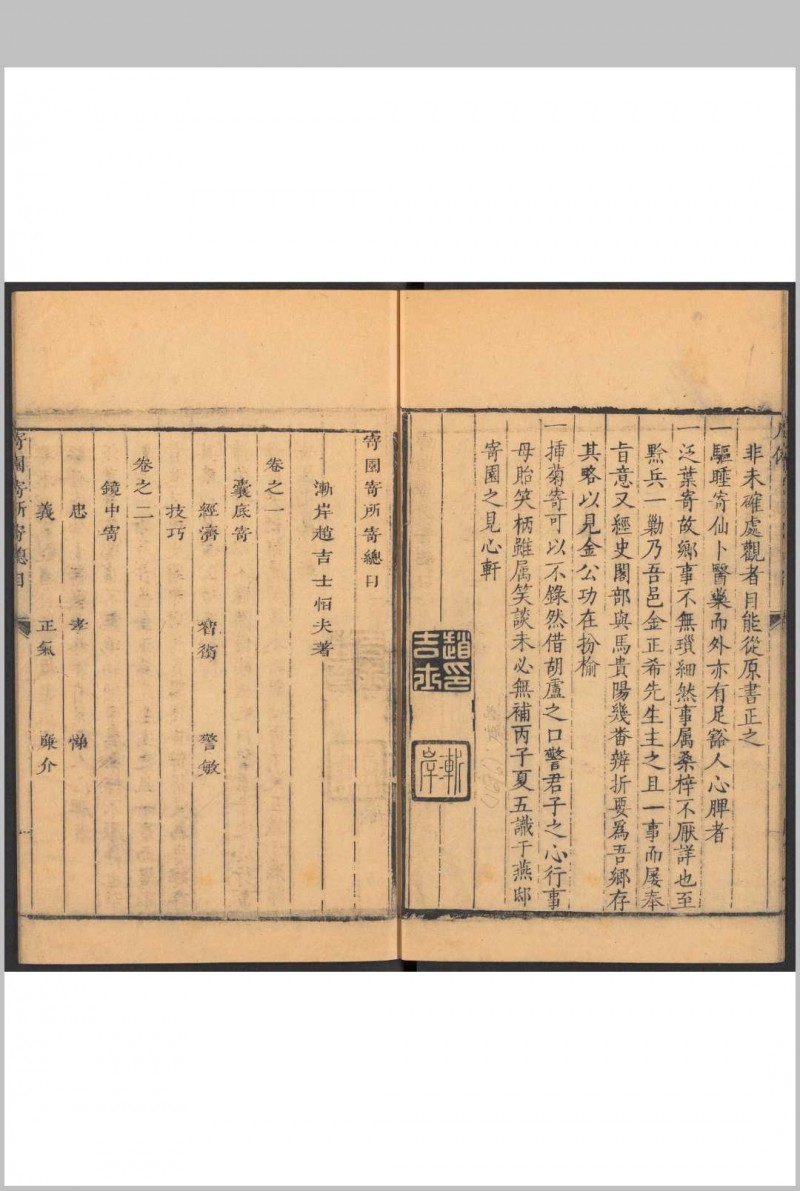 非未確處觀者目能從原書正之
一驅睡寄仙卜醫藥而外亦有足豁人心脾者
一泛葉寄故鄉事不無瑣細然事属桑梓不厭詳也至
黔兵一勦乃吾邑金正希先生主之且一事而屡奉
旨意又經史閣部與馬貴陽幾畨辨折要爲吾鄉存
其略以見金公功在枌榆
一揷菊寄可以不錄然借胡盧之口警君子之心行事
母胎笑柄雖属笑談未必無補丙子夏五識于燕邸
寄園之見心軒
趙印吉士
漸岸
寄園寄所寄總目
漸岸趙吉士恒夫著
卷之一
囊底寄
經濟 智術 警敏
技巧
卷之二
鏡中寄
忠 孝 悌
義 正氣 廉介
寄園寄所寄總目
一